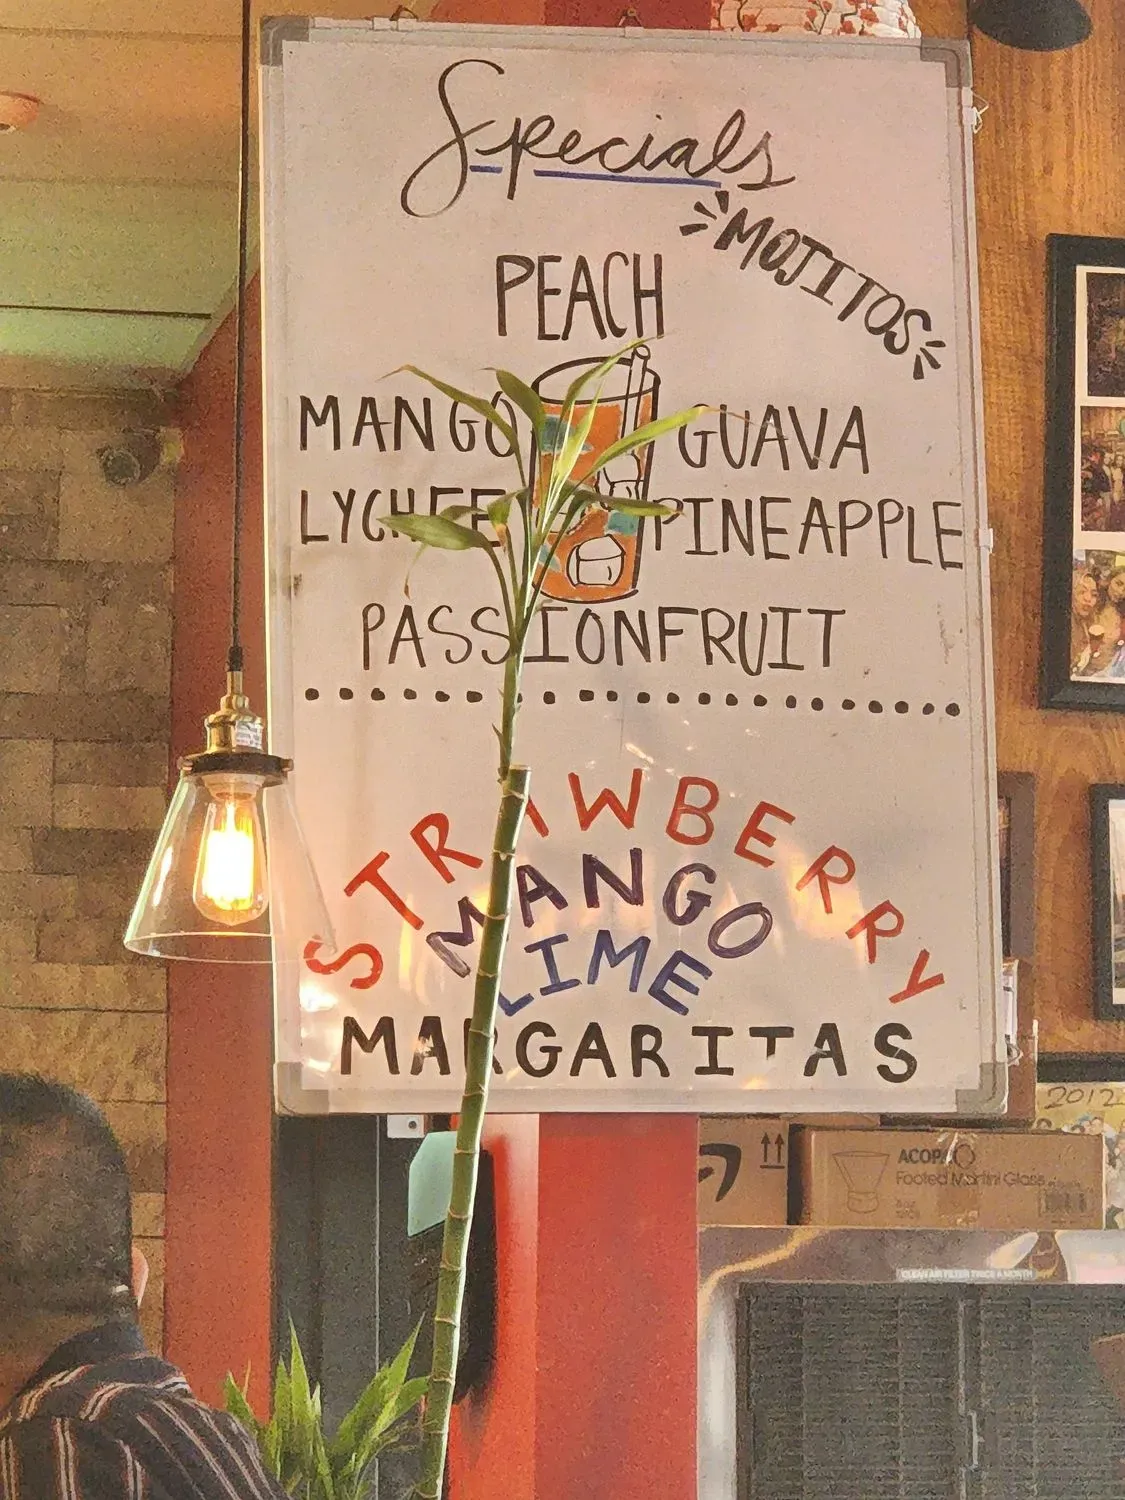 Specials
MOJITOS
PEACH
MANGO
GUAVA
LYCHEE
PINEAPPLE
PASSIONFRUIT
STRAWBERRY
MANGO
LIME
MARGARITAS
2012
ACOPA
Footed Martini Glass
CLEAN AIR FILTER TWICE A MONTH